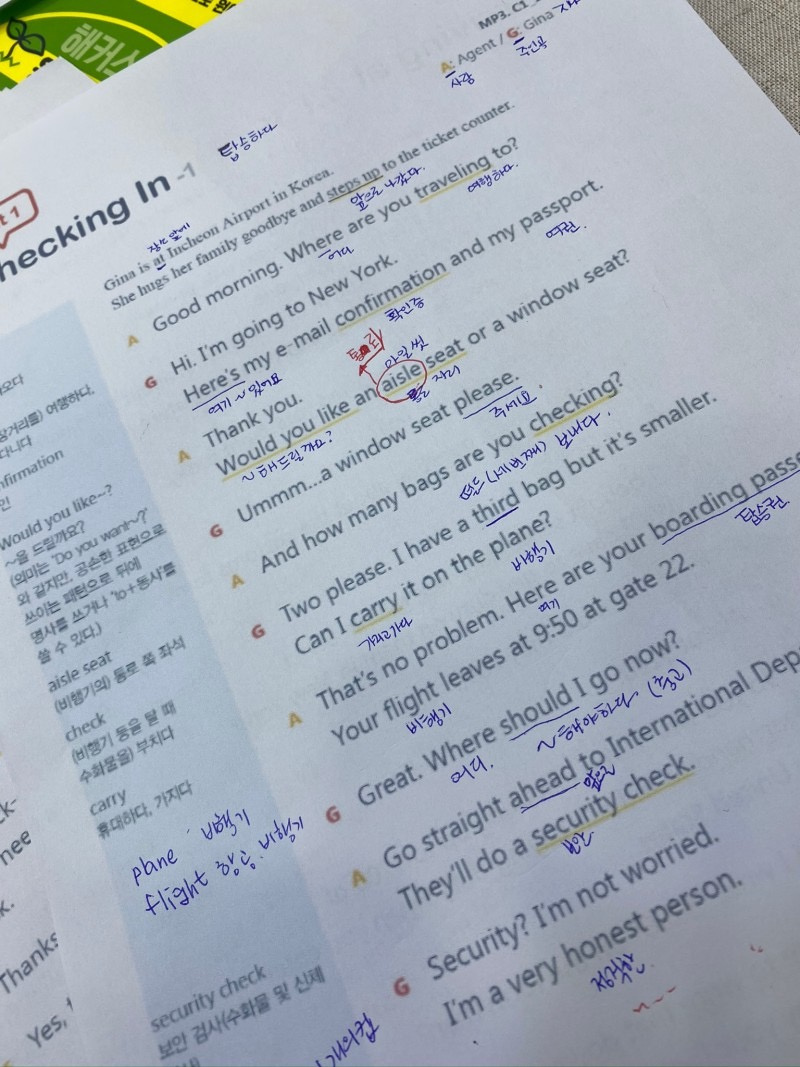 해커스
MP3. C1_
A: Agent / G: Gina
사람
주인공
탑승하다
t 1
hecking In -1
장소 앞에
Gina is at Incheon Airport in Korea.
She hugs her family goodbye and steps up to the ticket counter.
앞으로 나갔다.
A Good morning. Where are you traveling to?
어디
여행하다.
G Hi. I'm going to New York.
Here's my e-mail confirmation and my passport.
여기 ~ 있어요
확인증
여권.
A Thank you.
통로
아일 씻
Would you like an aisle seat or a window seat?
~ 해드릴까요?
자리
G Ummm...a window seat please.
주세요.
A And how many bags are you checking?
보내다.
G Two please. I have a third bag but it's smaller.
Can I carry it on the plane?
가지고가다
비행기
A That's no problem. Here are your boarding passe
여기
탑승권.
Your flight leaves at 9:50 at gate 22.
비행기
G Great. Where should I go now?
어디.
~해야하다.
A Go straight ahead to International Dep
앞으로
They'll do a security check.
보안
G Security? I'm not worried.
I'm a very honest person.
정직한.
오다
장거리를) 여행하다,
다니다
nfirmation
인
Would you like~?
~을 드릴까요?
(의미는 "Do you want~?"
와 같지만, 공손한 표현으로
쓰이는 패턴으로 뒤에
명사를 쓰거나 'to+동사'를
쓸 수 있다.)
aisle seat
(비행기의) 통로 쪽 좌석
check
(비행기 등을 탈 때
수화물을) 부치다
carry
휴대하다, 가지다
plane · 비행기
flight 항공. 비행기
security check
보안 검사(수화물 및 신체
k-
nee
k.
Thanks
Yes,